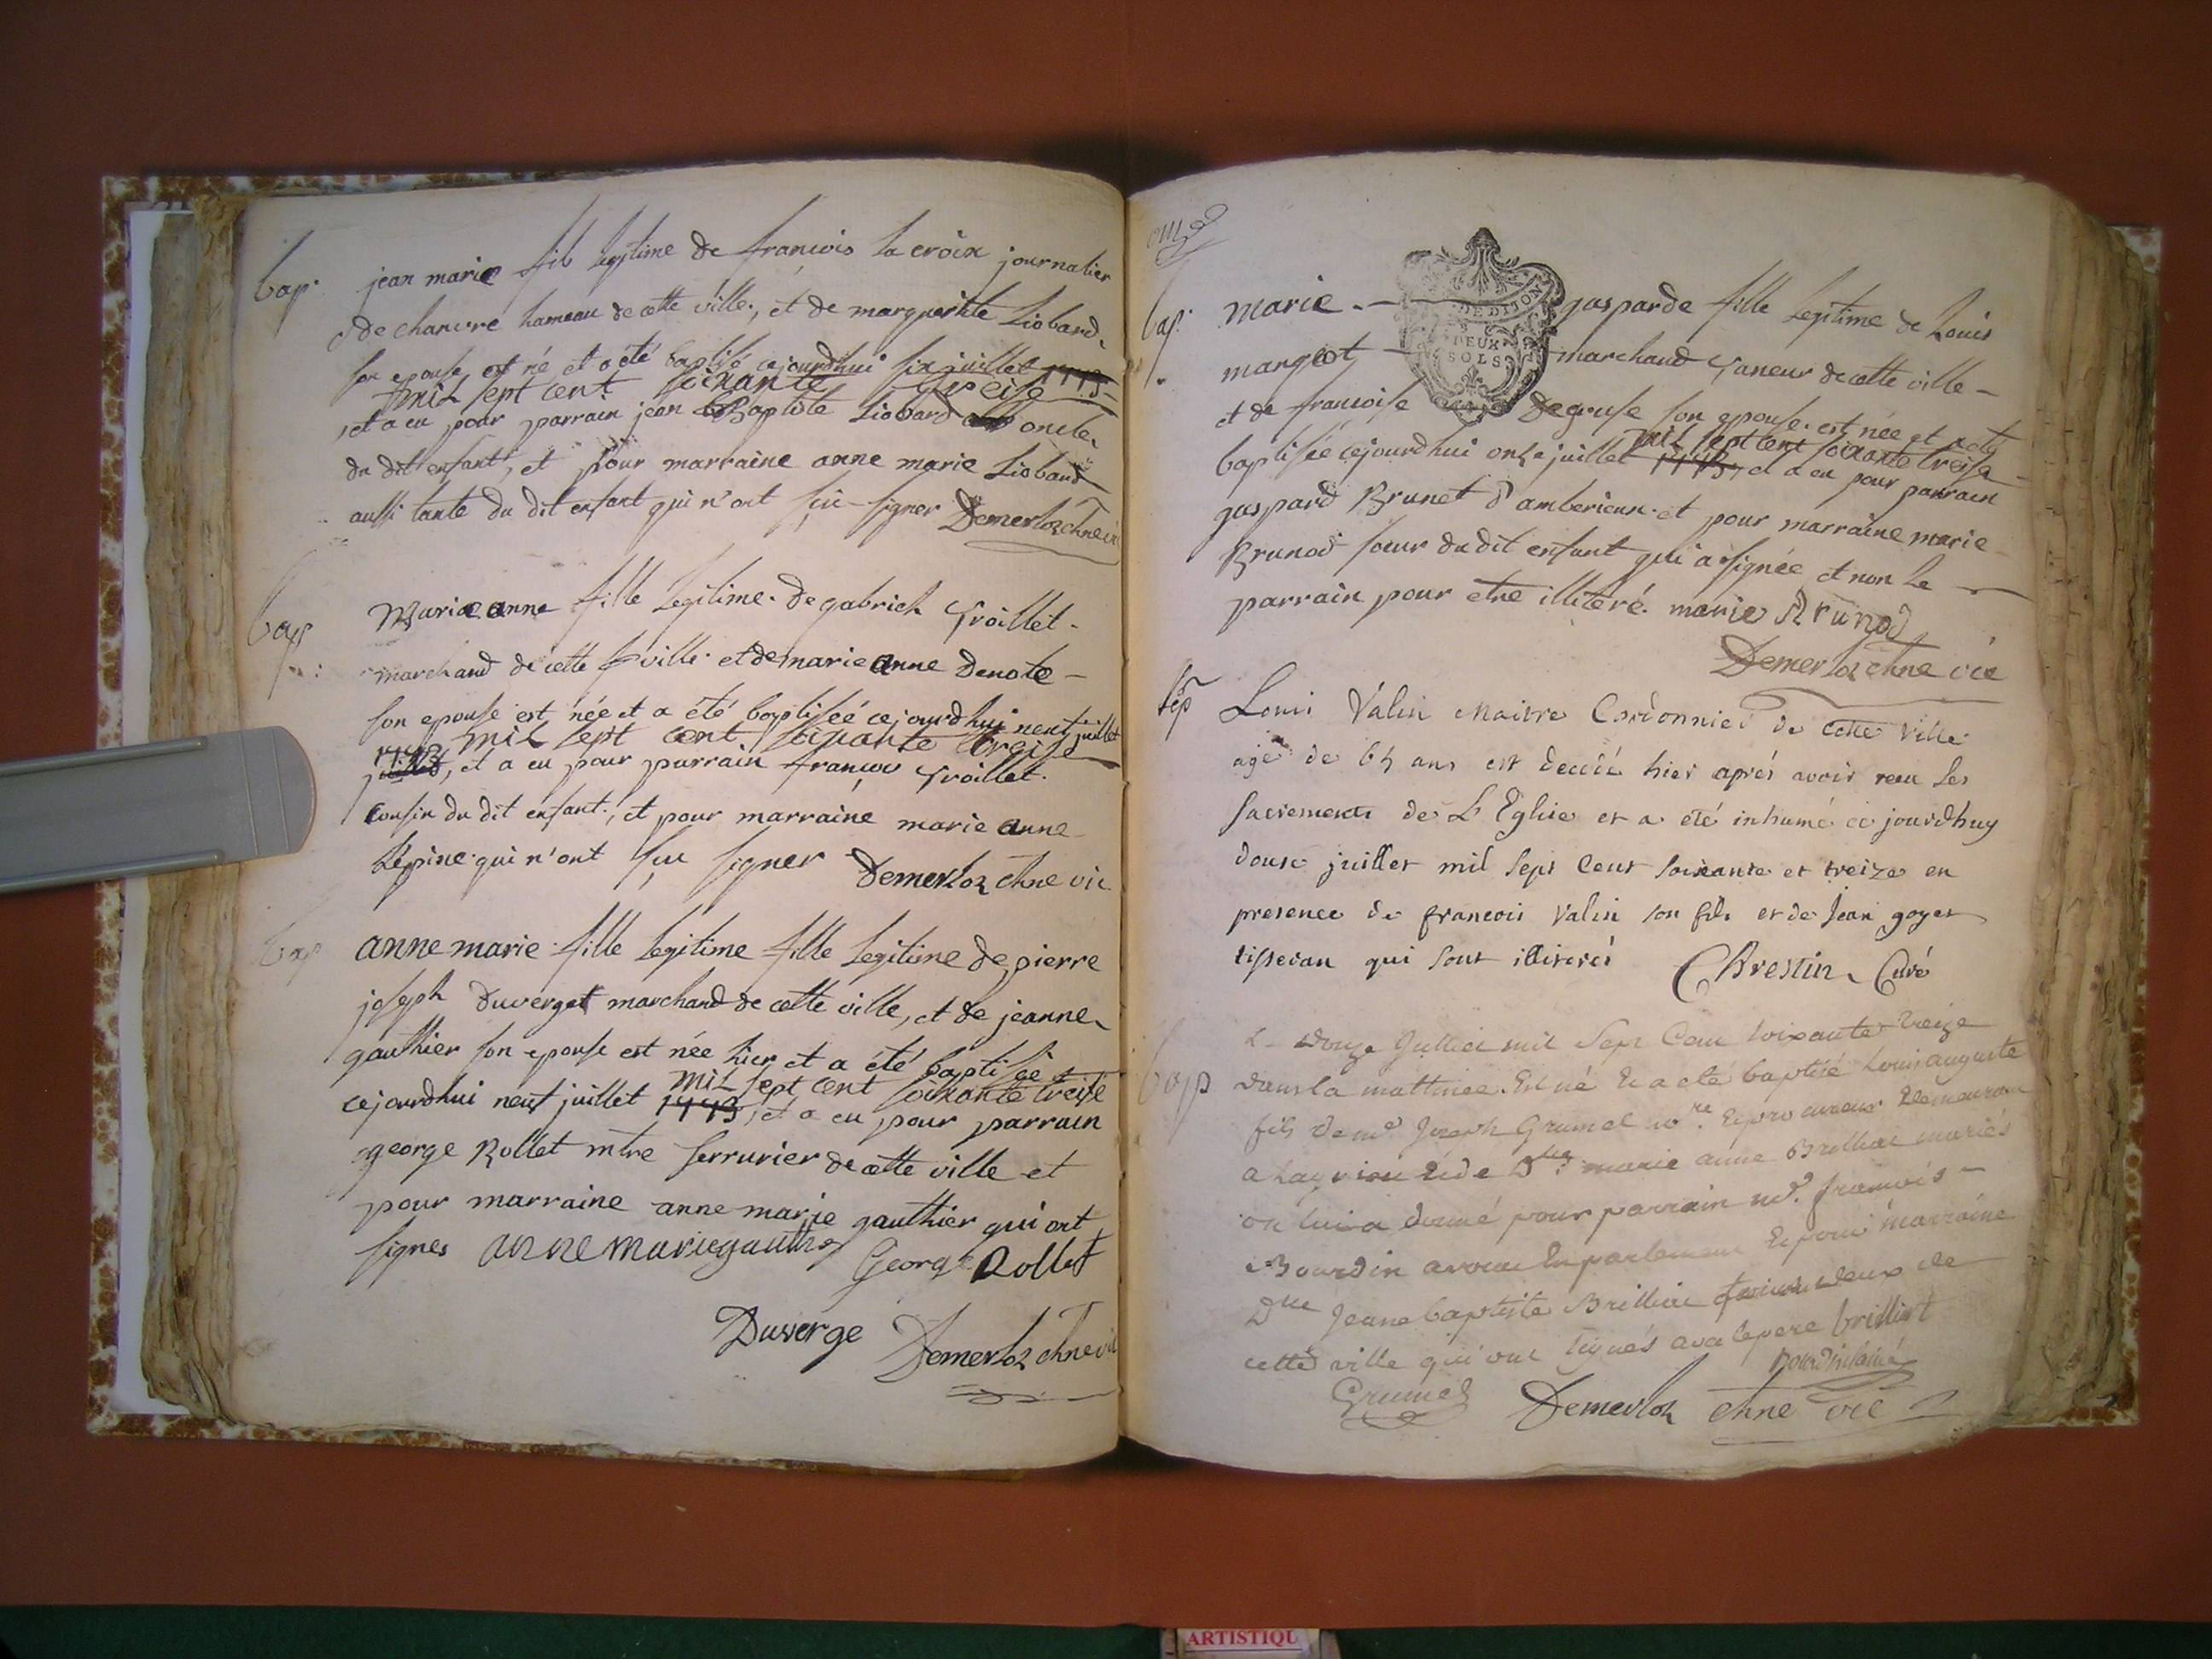 bap. jean marie fils legitime de francois la croix journalier
de chanvre hameau de cette ville, et de marguerite Liobard
son epouse est né et a été baptisé cejourdhui six juillet 1773
mil sept cent soixante treise
, et a eu pour parrain jean Baptiste Liobard oncle
du dit enfant, et pour marraine anne marie Liobard
aussi tante du dit enfant qui n'ont sçu signer Demerloz chne vic
bap Marie anne fille legitime de gabriel froillet
marchand de cette ville et de marie anne Denote
son epouse est née et a été baptiseé cejourdhui neuf juillet
1773 mil sept cent soixante treise
juillet, et a eu pour parrain françois froillet
cousin du dit enfant, et pour marraine marie anne
Lépine qui n'ont sçu signer Demerloz chne vic
bap anne marie fille legitime fille legitime de pierre
joseph Duverget marchand de cette ville, et de jeanne
gauthier son epouse est née hier et a été baptisée
mil sept cent soixante treise
cejourdhui neuf juillet 1773, et a eu pour parrain
george Rollet mtre serrurier de cette ville et
pour marraine anne marie gauthier qui ont
signes anne marie gauthier George Rollet
Duverge Demerloz chne vic
bap. marie gasparde fille legitime de Louis
DE DIJON
DEUX
SOLS
mangeot marchand taneur de cette ville
et de francoise Degruse son epouse est née et a été
mil sept cent soixante treise
baptisée cejourdhui onze juillet 1773, et a eu pour parrain
gaspard Brunet d'amberieux et pour marraine marie
Brunod soeur du dit enfant qui a signée et non le
parrain pour etre illiteré. marie Brunod
Demerloz chne vic
sep Louis Valin Maitre Cordonnier de cette ville
agé de 65 ans est decedé hier aprés avoir recu les
sacrements de L'Eglise et a été inhumé ce jourdhuy
douse juillet mil sept Cent soixante et treize en
presence de francois Valin son fils et de Jean goyet
tisseran qui sont illiterés Chrestin Curé
L. douze Juillet mil Sept Cent soixante treize
bap dans la mattinée. Est né Et a eté baptisé Louis auguste
fils de me Joseph Grumel nore Et procureur Demeuran
a Lagnieu Et de Dlle marie anne Brilliat mariés
on lui a donné pour parrain me francois
Bourdin avocat En parlement Et pour marraine
Dlle Jeanne baptiste Brilliat tous deux de
cette ville qui ont signés avec le pere brilliat
Bourdin lainé
Grumel Demerloz chne vic
ARTISTIQU